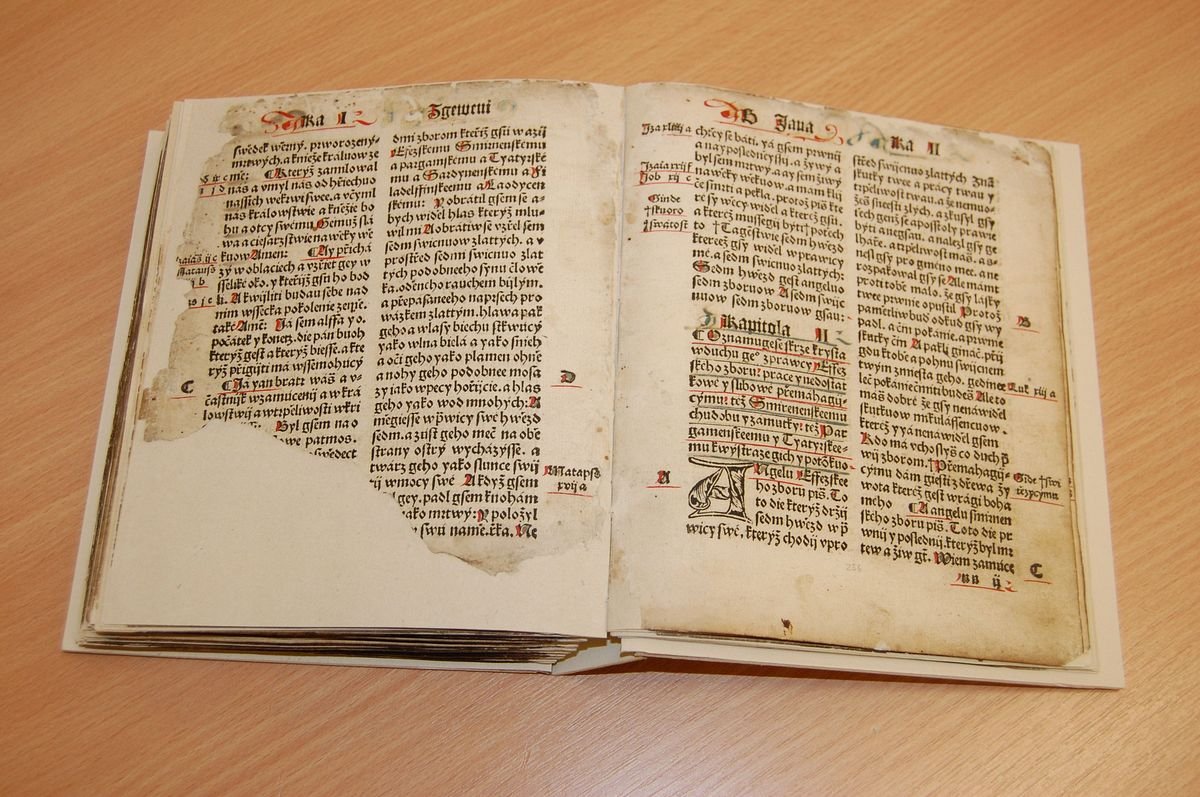 Ka I
Zgeweni
swědek wěrny. prworozeny
mrtwych. a kniežekraluow ze
mě: Kteryž zamilowal
nas a vmyl nás od hřiechuo
nassich we krwi swe. a včynil
nas kralowstwie a kniežie bo
hu a otcy swemu Gemuž sla
wa a ciesařstwie na wěky wě
kuow Amen: Ay přichá
zý w oblaciech a vzřiet gey w
sseliké oko. y kteřijž gsu ho bod
li. A kwijliti budau sebe nad
nim wssecka pokolenie země.
také Amě: Ja sem alffa y o.
počátek y konetz. die pán buoh
kteryž gest a kteryž biesse. a kte
ryž přigijti ma wssemohucý
Ja yan bratr wáš a v-
častnijk w zamuceni a w kra
lowstwij a w trpěliwosti w kri
Byl gsem na o
patmos.
swědect
C
dmi zborom kteřiž gsu w azij
Effezskemu Smirnenskemu
a pargamskemu a Tyatyrskě
mu a Sardynenskemu a Fi
ladelffinskemu a Laodycen
skému: Y obratil gsem se a-
bych widěl hlas kteryž mlu-
wil mi A obratiw se vzřel sem
sedm swicnuow zlattych. a v
prostřed sedm swicnuo zlat
tých podobneeho synu člowě
ka. oděncho rauchem bijlým.
a přepasaneeho naprsech pro
wázkem zlattým. hlawa pak
geho a wlasy biechu stkwucý
yako wlna bielá a yako snich
a oči geho yako plamen ohně
a nohy geho podobnee mosa
zy yako w pecy hořijcie. a hlas
geho yako wod mnohych: A
měgiesse w prawicy swe hwězd
sedm. a z úst geho meč na obě
strany ostrý wycházýsse. a
twárz geho yako slunce swij
tij w mocy swé A když gsem
gey. padl gsem k nohám
yako mrtwy: Y položyl
swu na mě. řka. Ne
D
Matauss
xvij a
S Jana
Ka II
Iza xliiij a
Izaia xxij f
Job xij c
Ginde
†skuoro
†swatost
A
chtěy se báti. yá gsem prwnij
a nayposlednyšij. a žywý a
byl sem mrtwy. a ay sem žiwý
na wěky wěkuow. a mam klij
če smrti a pekla. protož piš kte
re sy wěcy widěl a kterež gsu.
a kterež mussegij byti †potěch
to †Tagěstwie sedm hwězd
kteréž gsy widěl w prawicy
mé. a sedm swicnuo zlattych:
Sedm hwězd gest angeluo
sedm zboruow A sedm swijc
nuow sedm zboruow gsau:
Kapitola II
Oznamugese skrze krysta
w duchu ge° zprawcy Effez
skeho zboru: prace y nedostat
kowé y slibowé přemahagij-
cýmu: též Smirenenskeemu
chudobu y zamutky: též Par
gamenskeemu y Tyatyrskee-
mu k wystraze gich y potěkuo
ANgelu Effezskee
ho zboru piš. To
to die kteryž držij
sedm hwězd w p
wicy swé. kteryž chodij vpro
střed swijcnuo zlattych Zná
skutky twee a pracy twau y
trpěliwost twau. a že nemuo-
žeš snesti zlých. a zkusyl gsy
těch genž se aposstoly prawie
byti a negsau. a nalezl gsy ge
lháře. a trpěliwost máš. a s-
nesl gsy pro gmeno mee. a ne
rozpakowal gsy se Ale mám
proti tobě malo. že gsy lásky
twee prwnie opustil Protož
pamětliw buď odkud gsy wy
padl. a čiň pokánie. a prwnie
skutky čiň A pakli gináč. přij
gdu k tobě a pohnu swijcnem
twým z miesta geho. gedinee
leč pokánie činiti budeš Ale to
máš dobré že gsy nenáwiděl
skutkuow mikulássencuow.
kteréž y yá nenawiděl gsem
Kdo má vcho slyš co duch p
wij zborom. †Přemahagij-
cýmu dám giesti z dřewa žy
wota kteréž gest w rági boha
meho A angelu smirnen
skeho zboru piš. Toto die pr
wnij y poslednij. kteryž byl mr
tew a žiw gt. Wiem zamuce
B
Luk xiij a
Ginde †swi
těžycymu
C
ij
256